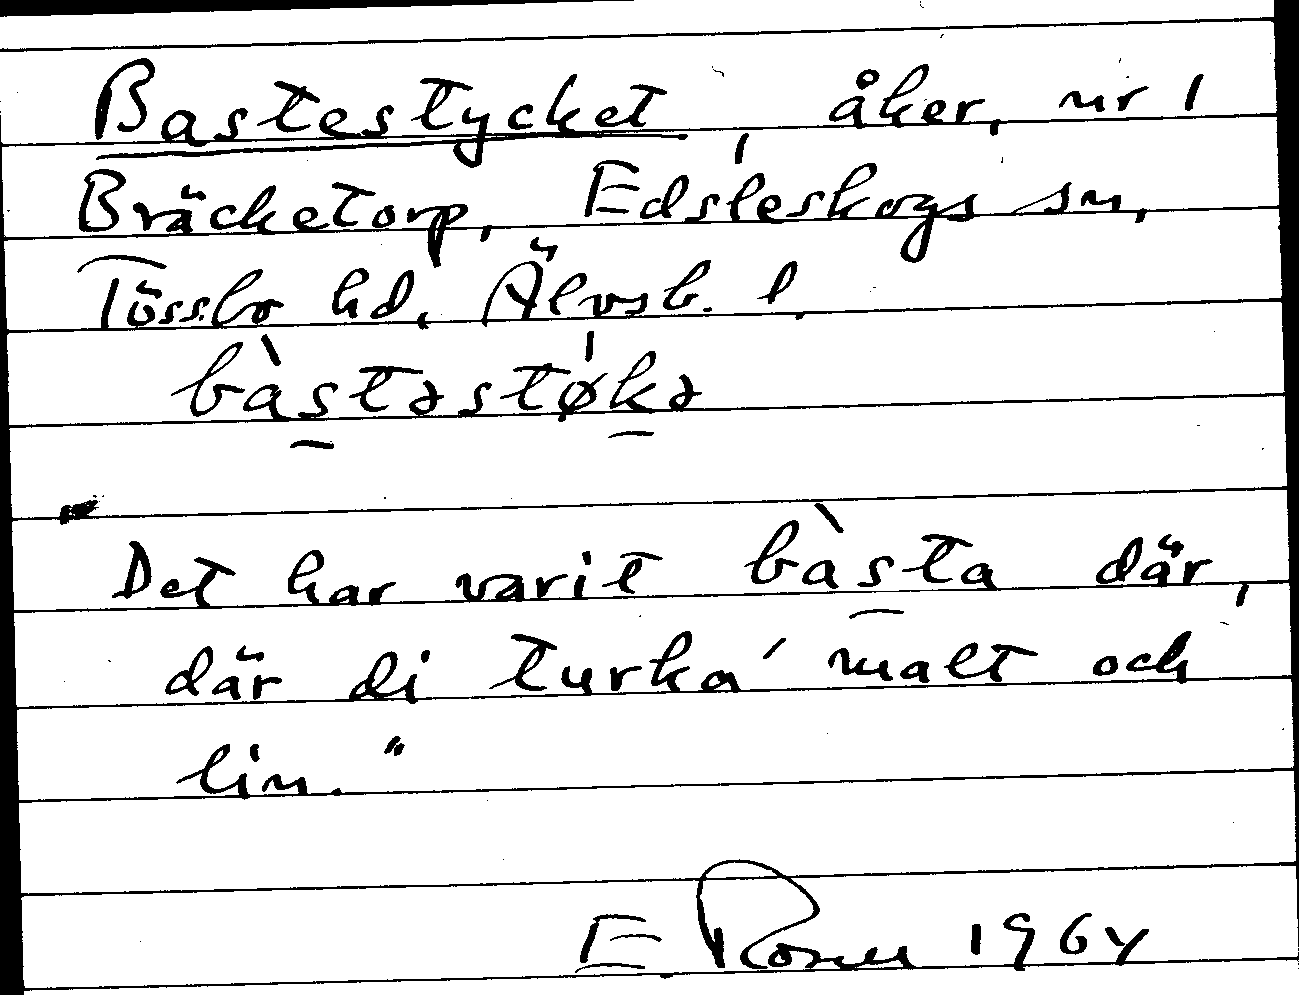 Bastestycket, åker, nr 1
Bräcketorp, Edsleskogs sn,
Tössbo hd, Älvsb. l.
bàstəstø̍kə
"Det har varit bàsta där,
där di turka' malt och
lin."
E. Rosell 1964